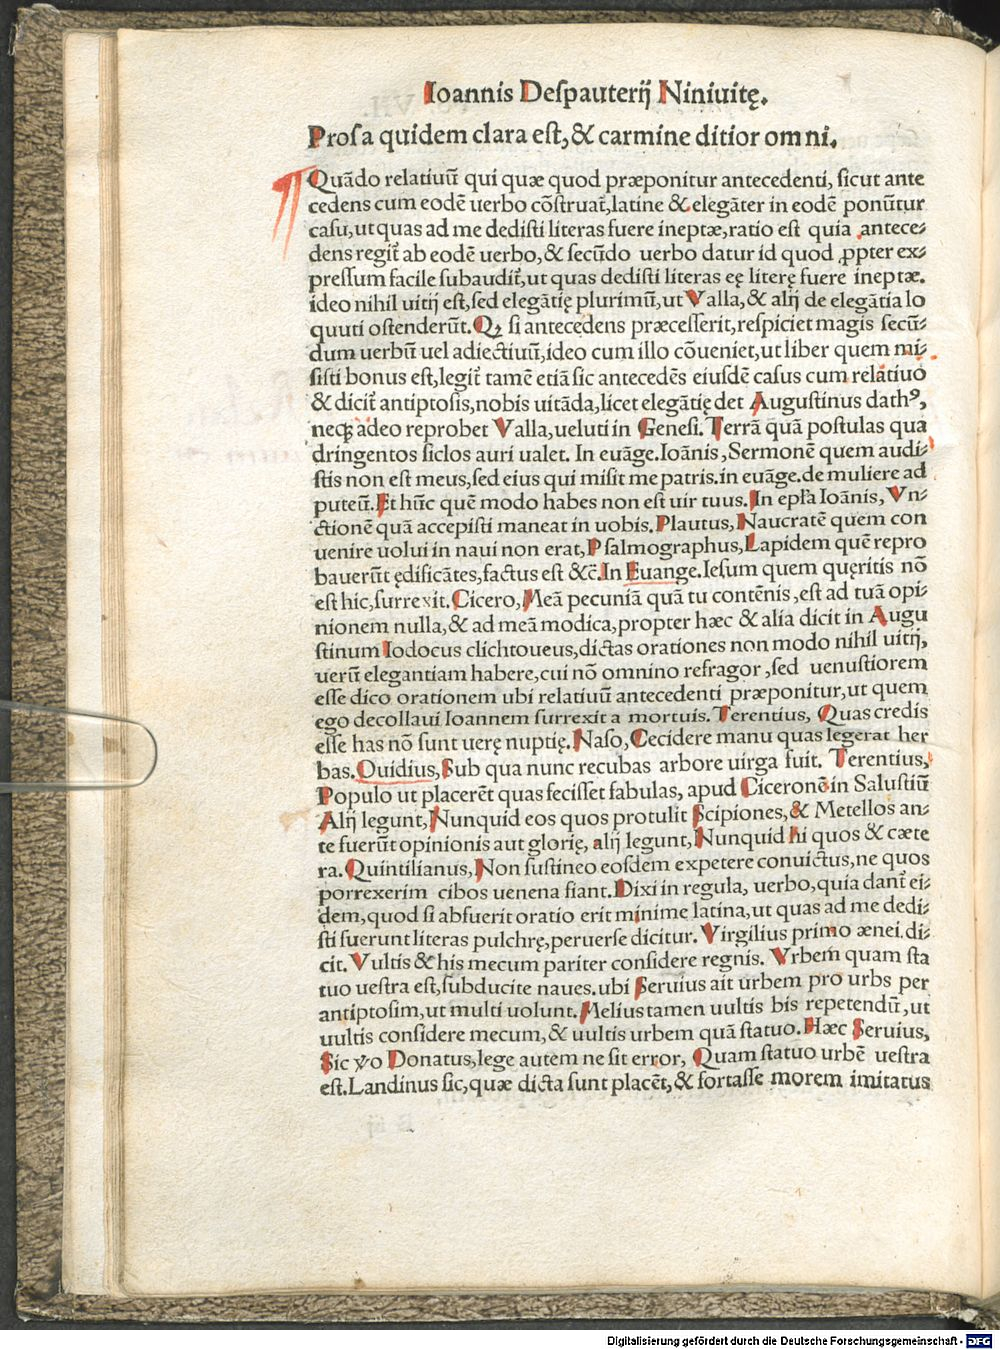 Ioannis Deſpauterij Niniuitę.
Proſa quidem clara eſt,& carmine ditior omni.
Quãdo relatiuũ qui quæ quod præponitur antecedenti, ſicut ante
cedens cum eodẽ uerbo cõſtruat̃,latine & elegãter in eodẽ ponũtur
caſu,ut quas ad me dedisti literas fuere ineptæ,ratio eſt quia antece⸗
dens regit̃ ab eodẽ uerbo,& ſecũdo uerbo datur id quod ꝓpter ex⸗
preſſum facile ſubaudit̃,ut quas dediſti literas eę literę fuere ineptæ.
ideo nihil uitij eſt,ſed elegãtię plurimũ,ut Valla,& alij de elegãtia lo
quuti oſtenderũt.Qꝫ ſi antecedens præceſſerit,reſpiciet magis ſecũ⸗
dum uerbũ uel adiectiuũ,ideo cum illo cõueniet,ut liber quem mi⸗
ſiſti bonus eſt,legit̃ tamẽ etiã ſic antecedẽs eiuſdẽ caſus cum relatiuo
& dicit̃ antiptoſis,nobis uitãda,licet elegãtię det Auguſtinus dathꝰ,
necꝫ adeo reprobet Valla,ueluti in Geneſi.Terrã quã poſtulas qua
dringentos ſiclos auri ualet. In euãge.Ioãnis,Sermonẽ quem audi⸗
ſtis non eſt meus,ſed eius qui miſit me patris.in euãge.de muliere ad
puteũ.Et hũc quẽ modo habes non eſt uir tuus.In epľa Ioãnis, Vn⸗
ctionẽ quã accepiſti maneat in uobis.Plautus,Naucratẽ quem con
uenire uolui in naui non erat,Pſalmographus,Lapidem quẽ repro
bauerũt ędificãtes,factus eſt &c̃.In Euange.Ieſum quem quęritis nõ
eſt hic,ſurrexit.Cicero,Meã pecuniã quã tu contẽnis,eſt ad tuã opi⸗
nionem nulla,& ad meã modica,propter hæc & alia dicit in Augu
ſtinum Iodocus clichtoueus,dictas orationes non modo nihil uitij,
uerũ elegantiam habere,cui nõ omnino refragor,ſed uenuſtiorem
eſſe dico orationem ubi relatiuũ antecedenti præponitur,ut quem
ego decollaui Ioannem ſurrexit a mortuis.Terentius, Quas credis
eſſe has nõ ſunt uerę nuptię.Naſo,Cecidere manu quas legerat her
bas.Ouidius,Sub qua nunc recubas arbore uirga fuit. Terentius,
Populo ut placerẽt quas feciſſet fabulas, apud Ciceronẽ in Saluſtiũ
Alij legunt,Nunquid eos quos protulit Scipiones,& Metellos an⸗
te fuerũt opinionis aut glorię, alij legunt,Nunquid hi quos & cæte
ra.Quintilianus,Non ſuſtineo eoſdem expetere conuictus,ne quos
porrexerim cibos uenena fiant.Dixi in regula, uerbo,quia dant̃ ei⸗
dem,quod ſi abfuerit oratio erit minime latina,ut quas ad me dedi⸗
ſti fuerunt literas pulchrę,peruerſe dicitur.Virgilius primo ænei.di⸗
cit.Vultis & his mecum pariter conſidere regnis. Vrbem quam ſta
tuo ueſtra eſt,ſubducite naues.ubi Seruius ait urbem pro urbs per
antiptoſim,ut multi uolunt.Melius tamen uultis bis repetendũ,ut
uultis conſidere mecum,& uultis urbem quã ſtatuo.Hæc Seruius,
Sic ꝟo Donatus,lege autem ne ſit error, Quam ſtatuo urbẽ ueſtra
eſt.Landinus ſic,quæ dicta ſunt placẽt,& fortaſſe morem imitatus
Digitalisierung gefördert durch die Deutsche Forschungsgemeinschaft - DFG